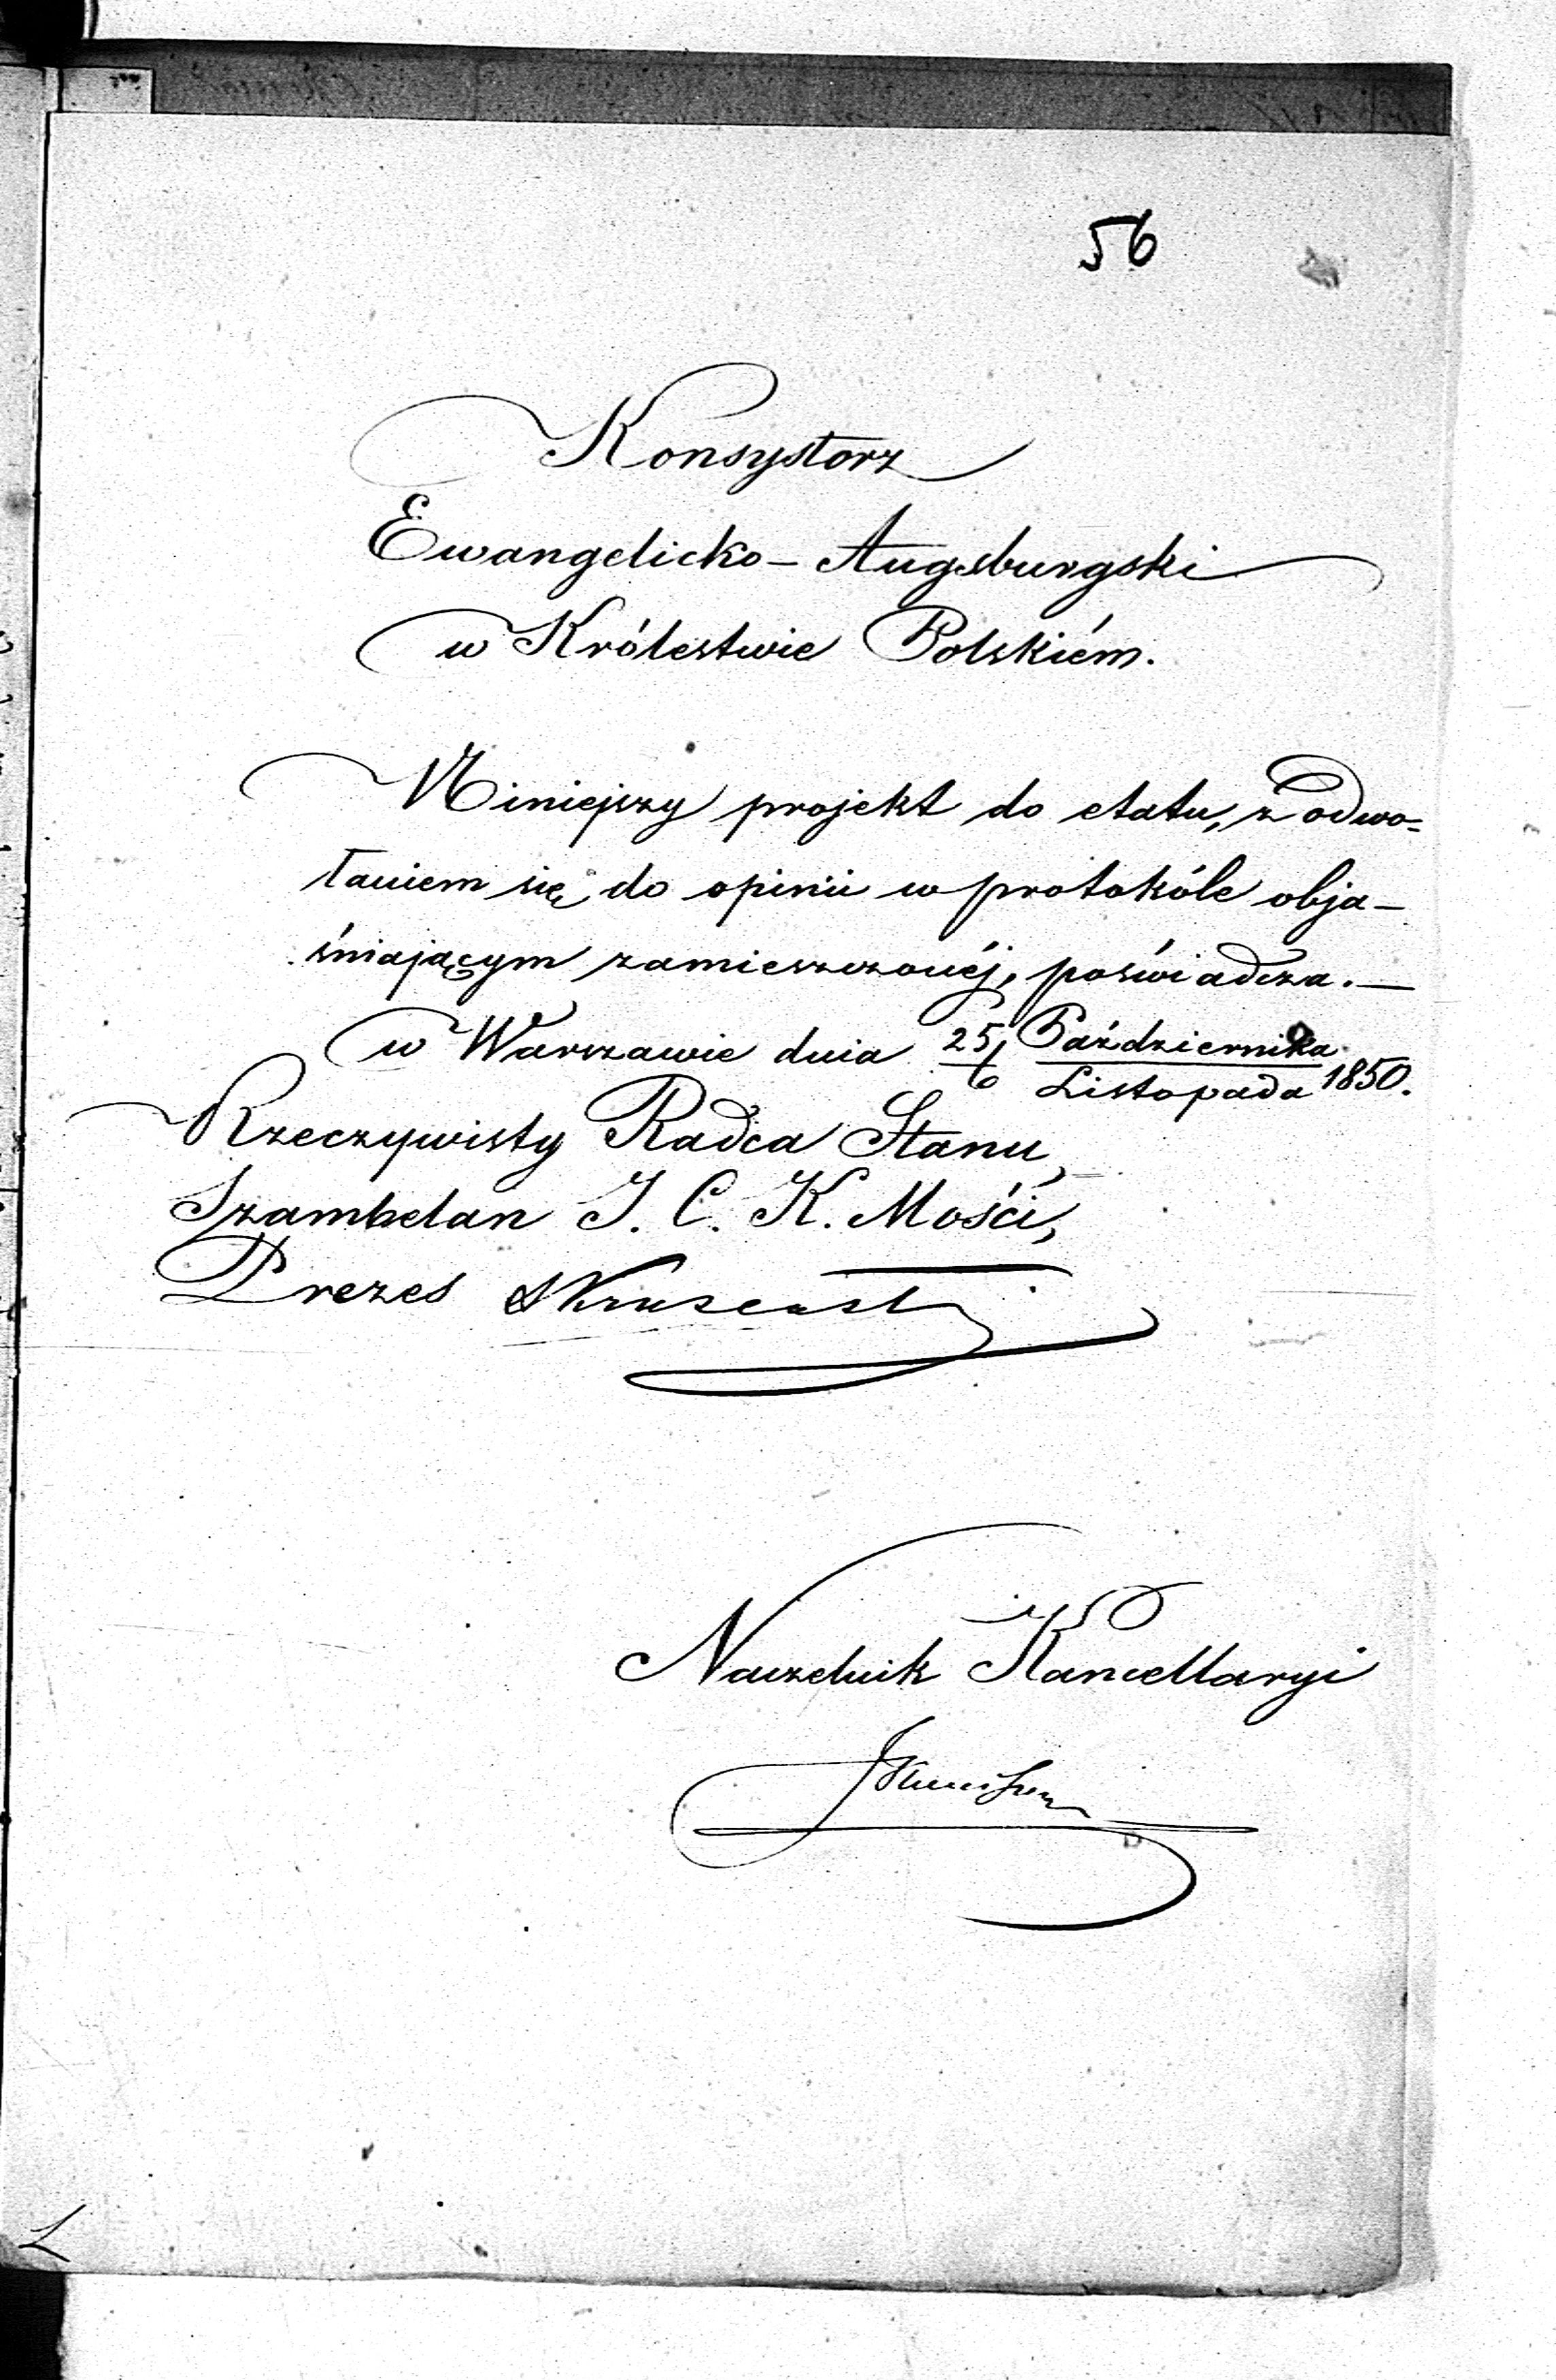 56
Konsystorz
Ewangelicko-Augsburgski
w Królestwie Polskiém.
Niniejszy projekt do etatu, z odwo-
łaniem się do opinii w protokóle obja-
śniającym zamieszczonéj, poświadcza.—
w Warszawie dnia 25/6 Października/Listopada 1850.
Rzeczywisty Radca Stanu,
Szambelan J. C. K. Mości,
Prezes
Naczelnik Kancellaryi